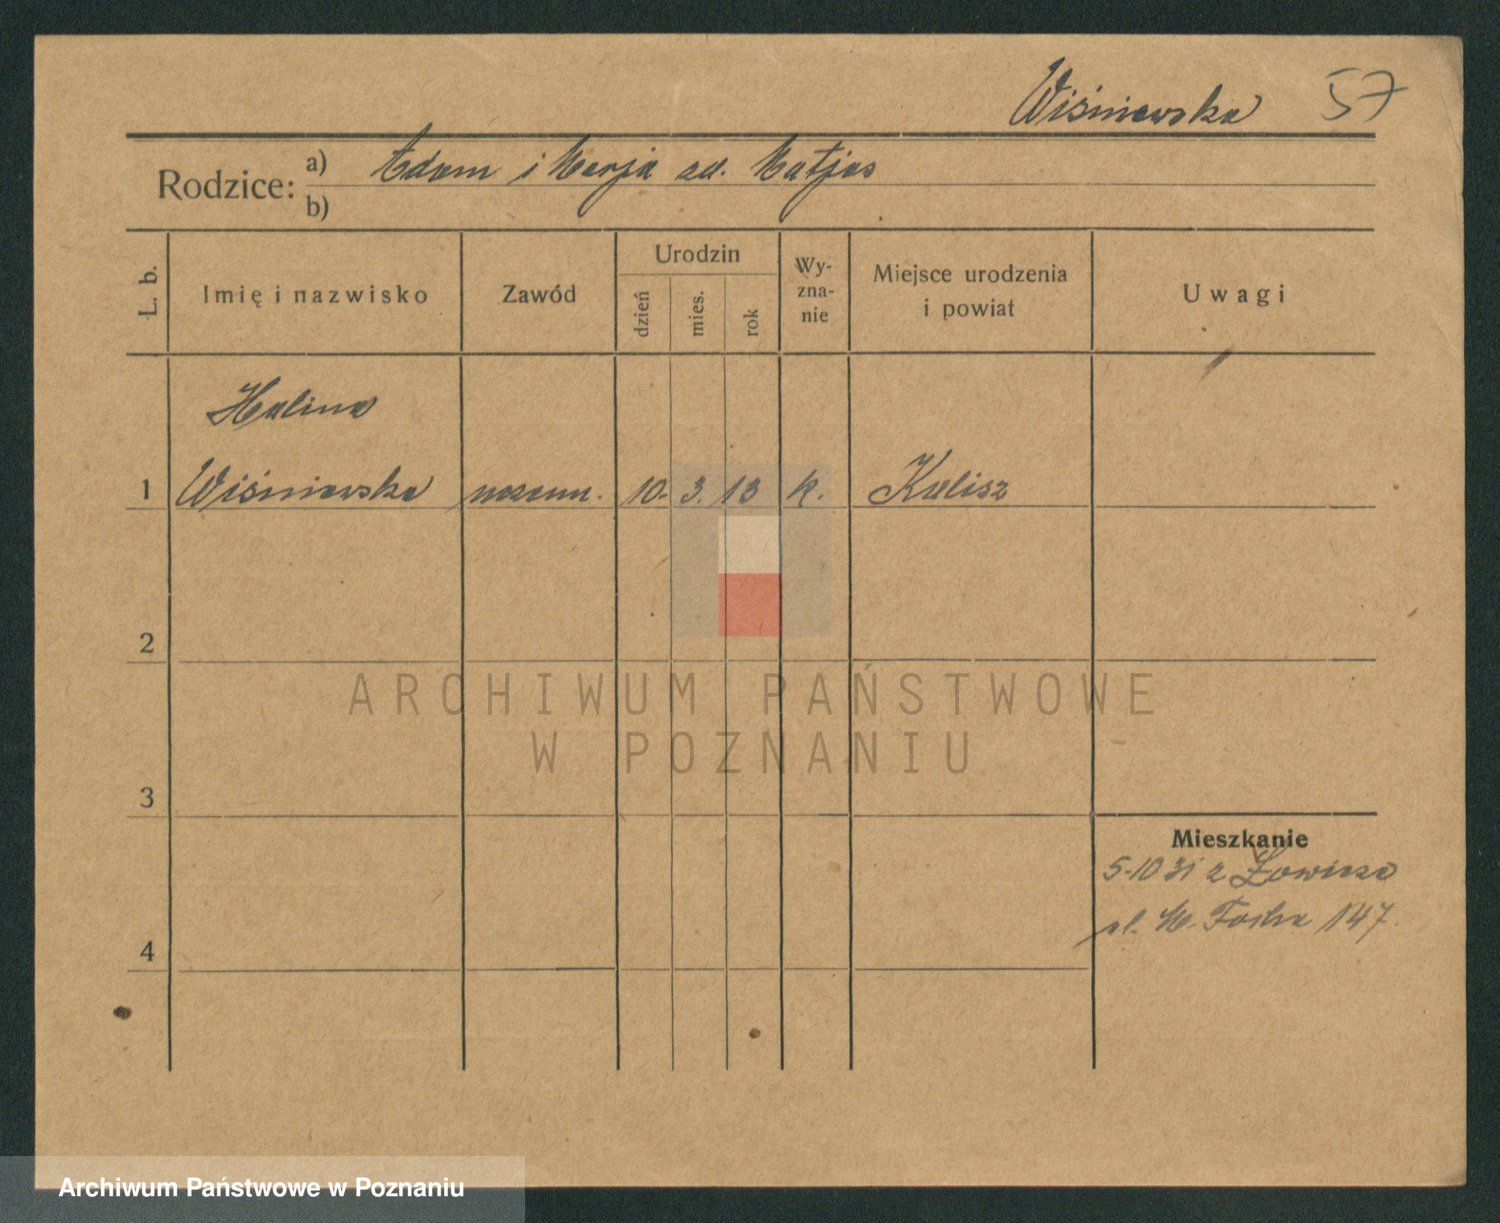 Wiśniewska 57
Rodzice: a) Adam i Marja zd. Matjas
b)
L. b.
Imię i nazwisko
Zawód
Urodzin
dzień
mies.
rok
Wy-
zna-
nie
Miejsce urodzenia
i powiat
Uwagi
Halina
1 Wiśniewska 10. 3. 13 k. Kalisz
2
ARCHIWUM PAŃSTWOWE
W POZNANIU
3
Mieszkanie
5-10 31 z Łowicza
ul. M. Focha 147.
4
Archiwum Państwowe w Poznaniu